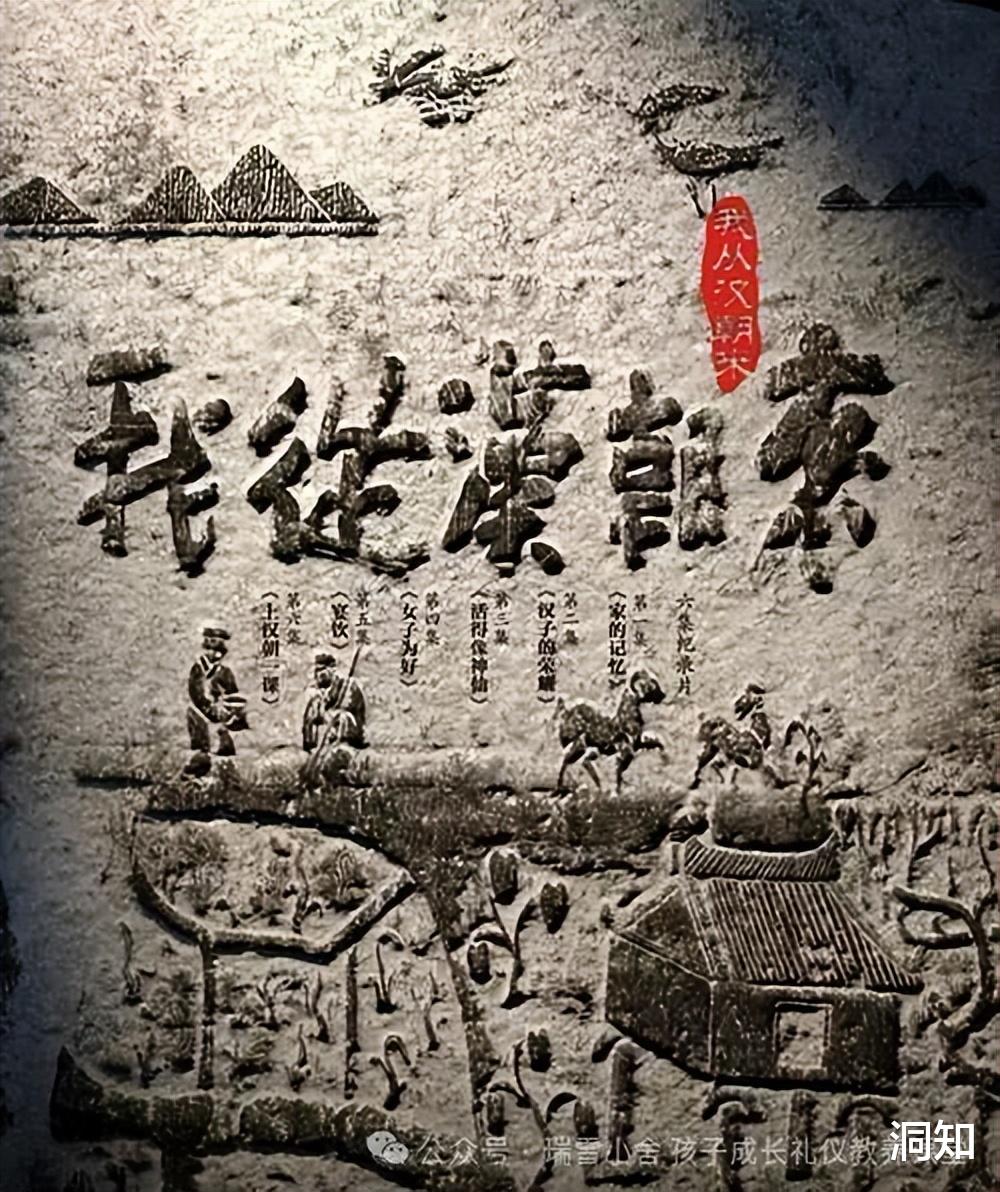 我从汉朝来
我從漢朝來
六集纪录片
第一集
《家的记忆》
第二集
《汉子的荣耀》
第三集
《活得像神仙》
第四集
《女子为好》
第五集
《宴饮》
第六集
《上汉朝一课》
公众号 瑞雪小舍 孩子成长礼仪教养
洞知